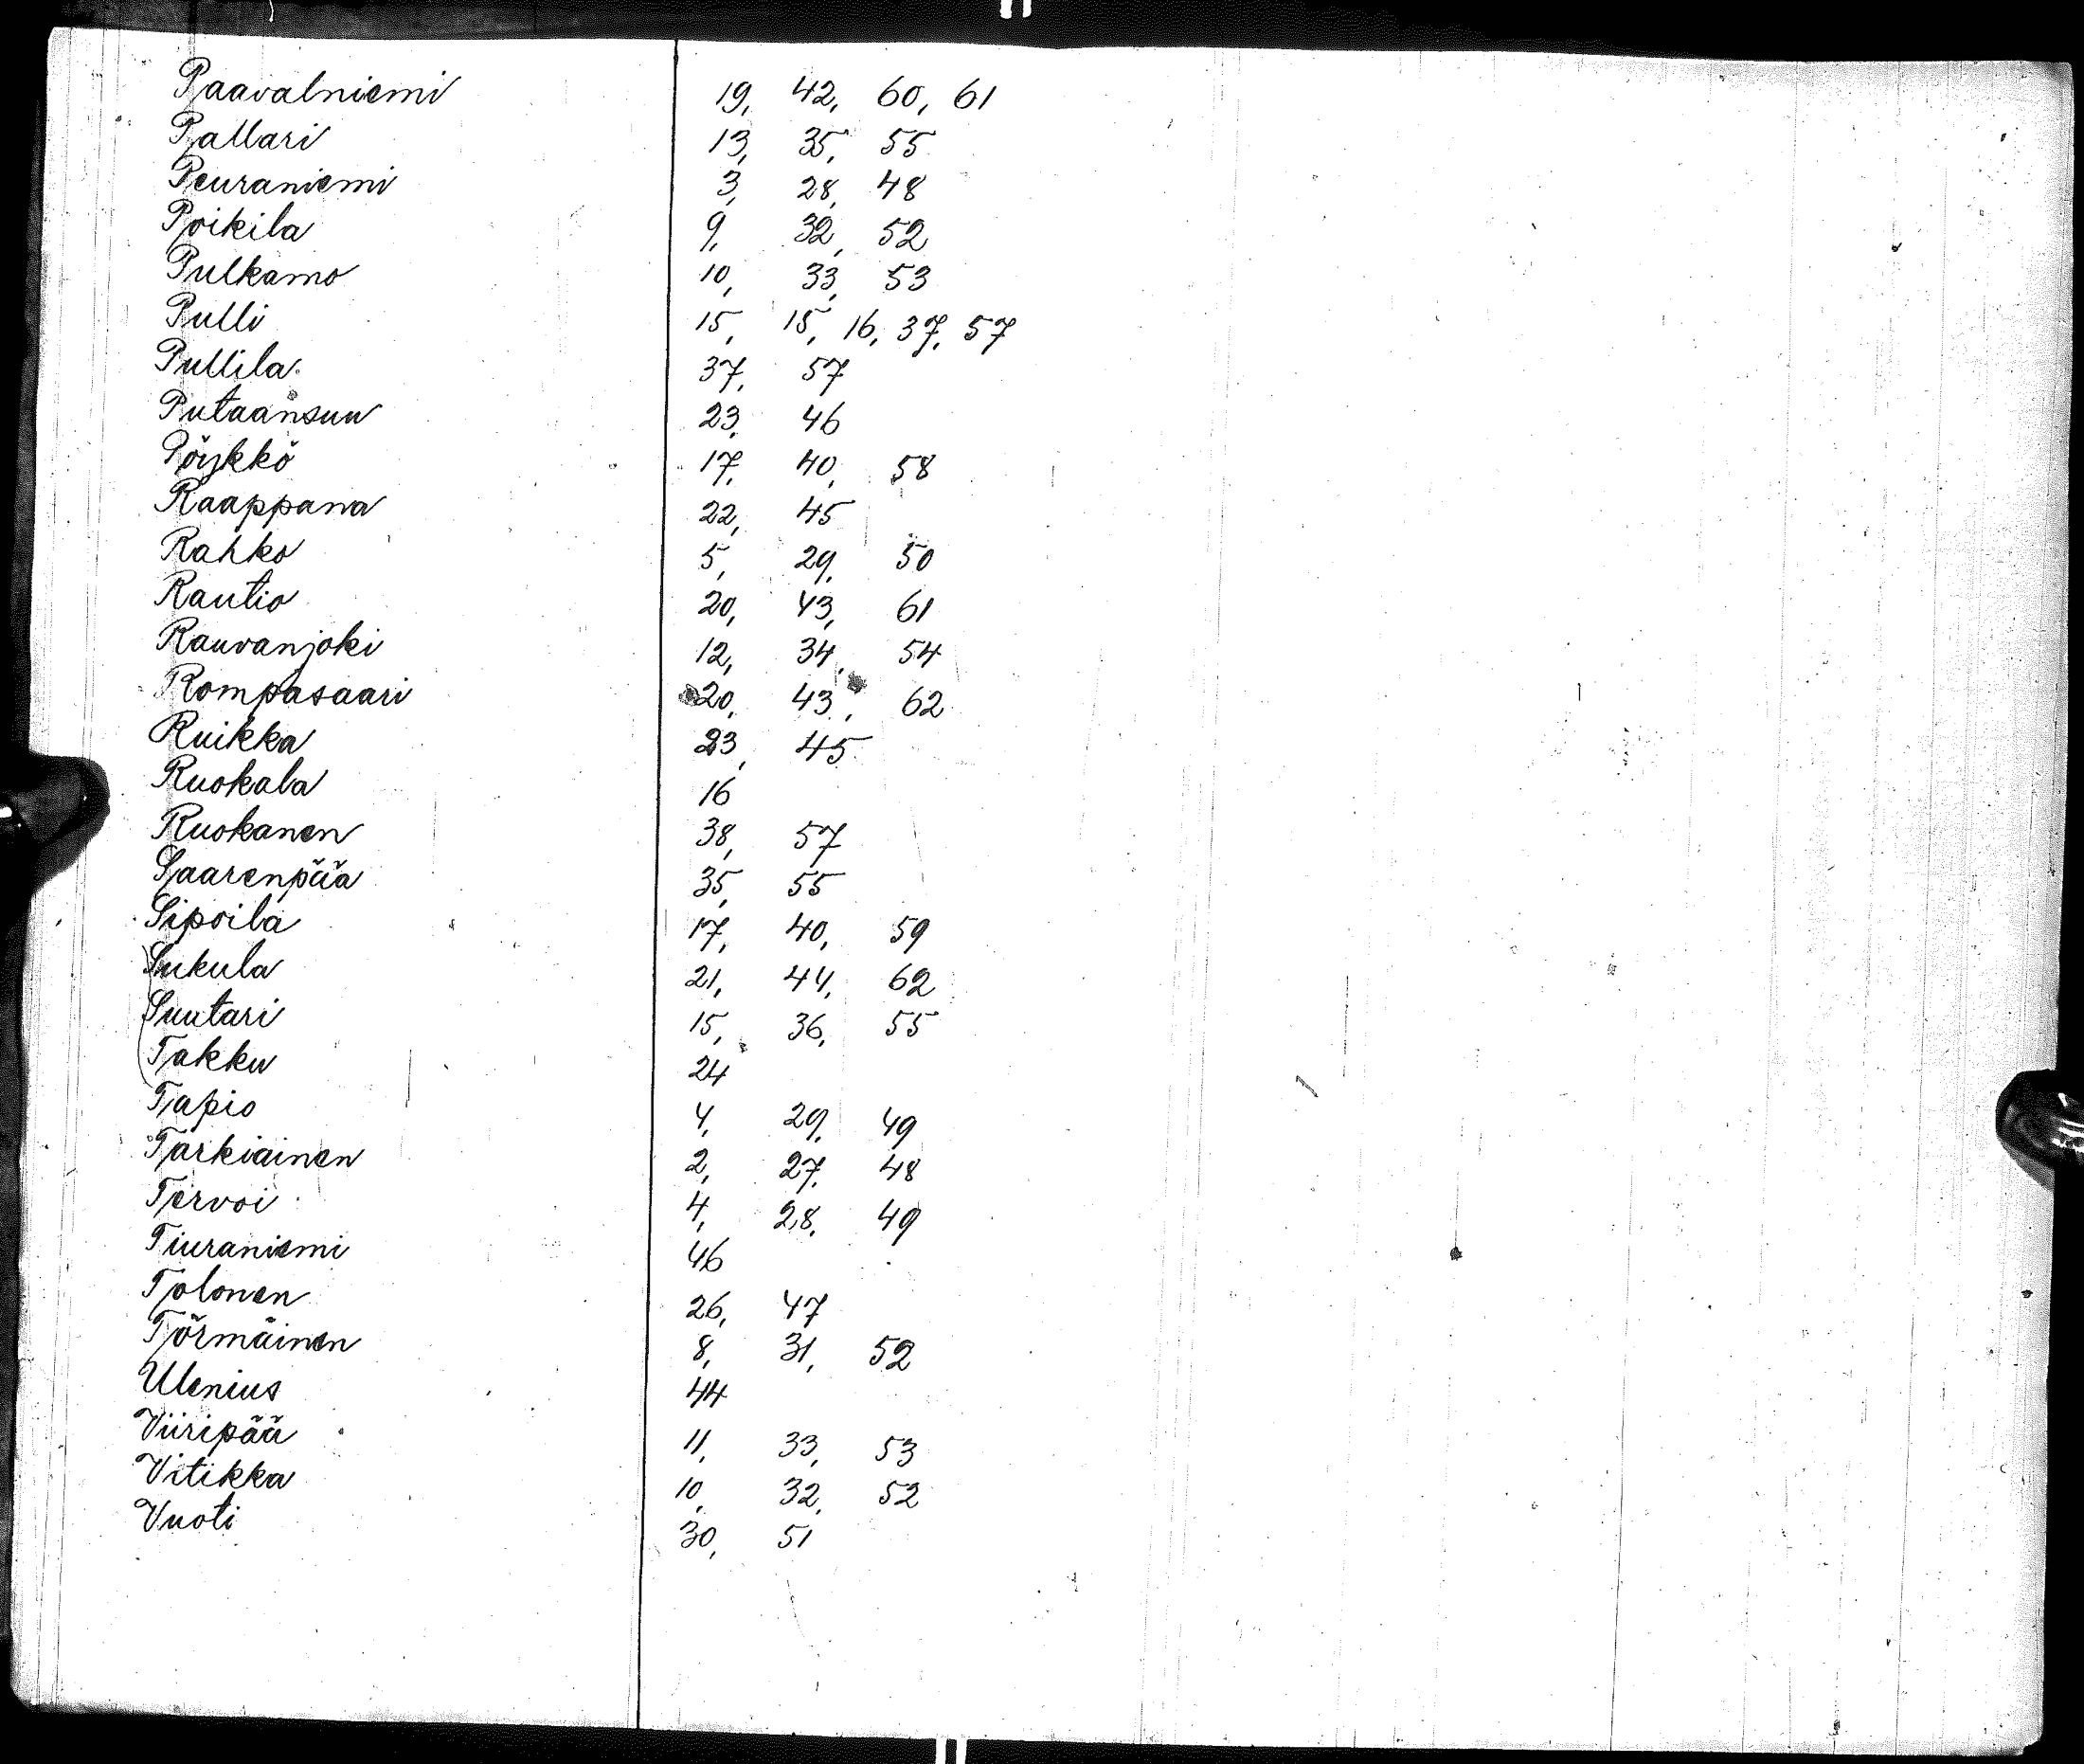 Paavalniemi 19, 42, 60, 61
Pallari 13, 35, 55
Peuraniemi 3, 28, 48
Poikila 9, 32, 52
Pulkamo 10, 33, 53
Pulli 15, 15, 16, 37, 57
Pullila 37, 57
Putaansuu 23, 46
Pöykkö 17, 40, 58
Raappana 22, 45
Rahko 5, 29, 50
Rautio 20, 43, 61
Rauvanjoki 12, 34, 54
Rompasaari 20, 43, 62
Ruikka 23, 45
Ruokala 16
Ruokanen 38, 57
Saarenpää 35, 55
Sipoila 17, 40, 59
Sukula 21, 44, 62
Suutari 15, 36, 55
Takku 24
Tapio 4, 29, 49
Tarkiainen 2, 27, 48
Tervoi 4, 28, 49
Tiuraniemi 46
Tolonen 26, 47
Törmäinen 8, 31, 52
Ulenius 44
Viiripää 11, 33, 53
Vitikka 10, 32, 52
Vuoti 30, 51